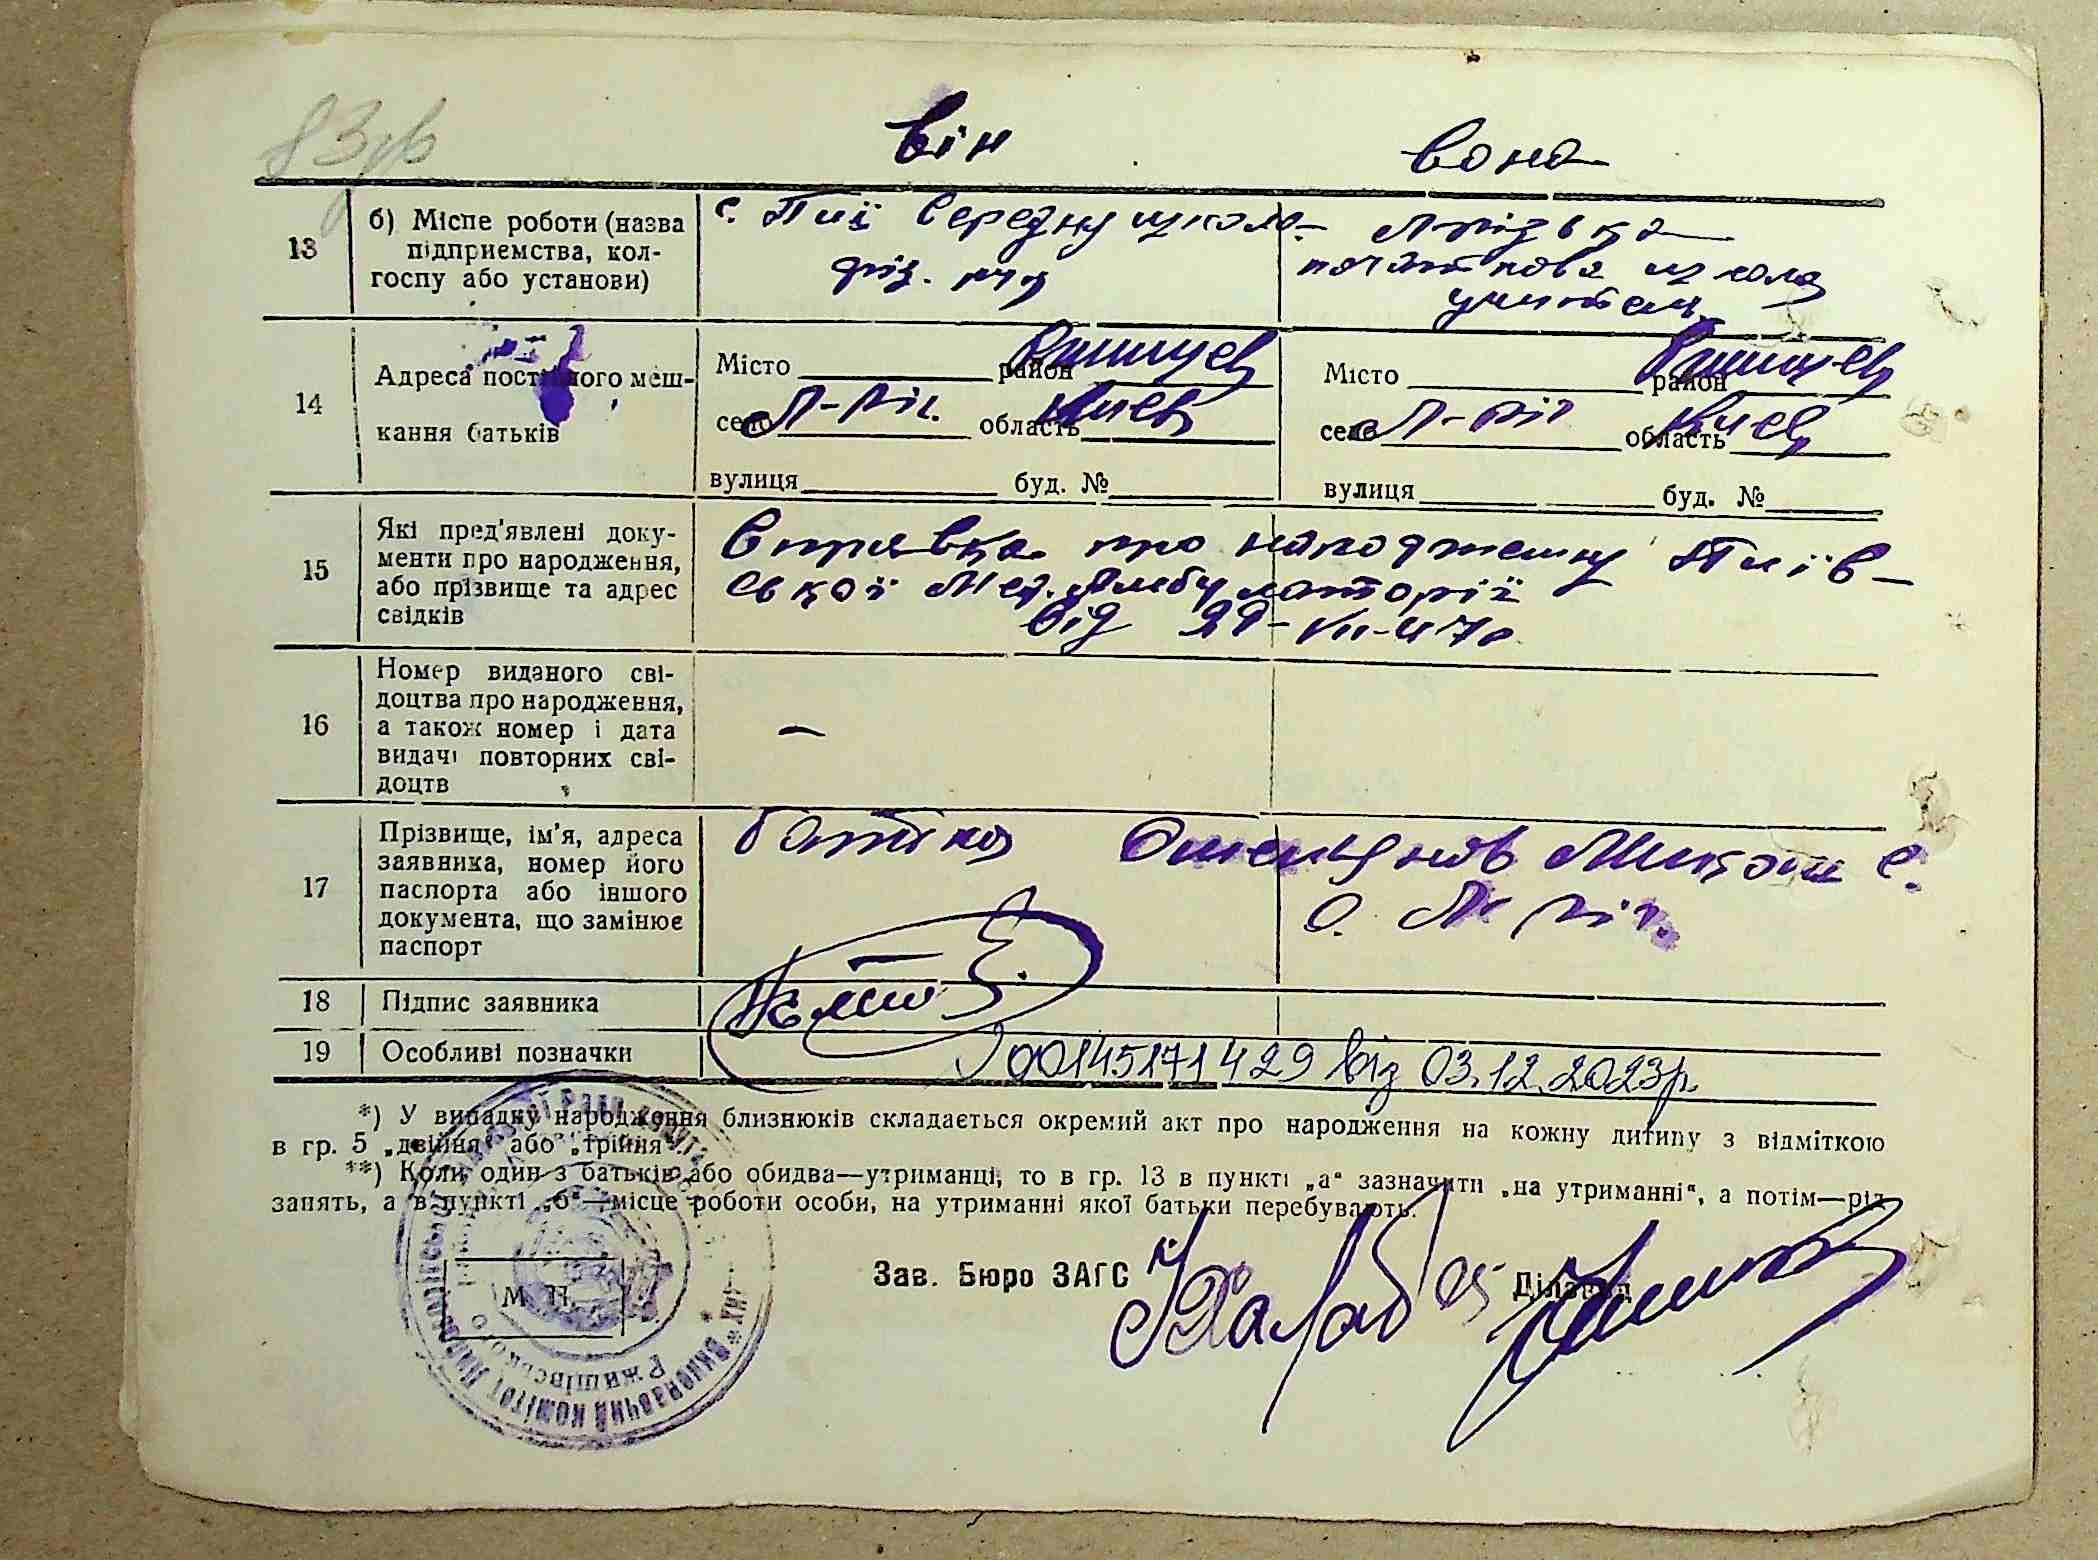 83зв
він вона
13 б) Місце роботи (назва підприємства, колгоспу або установи)
с. Пії Середну школа
почяткова школа
учитель
14 Адреса постійного мешкання батьків
Місто район Ржищев
село Л-Ріг. область Київ
вулиця буд. №
Місто район Ржищев
село Л-Ріг область Київ
вулиця буд. №
15 Які пред'явлені документи про народження, або прізвище та адрес свідків
Справка про народженну Пиїв-
ської Мед. Амбулаторії
від 29-VII-47р
16 Номер виданого свідоцтва про народження, а також номер і дата видачі повторних свідоцтв
—
17 Прізвище, ім'я, адреса заявника, номер його паспорта або іншого документа, що замінює паспорт
батько Микола Є.
с. Л. Ріг.
18 Підпис заявника
19 Особливі позначки
00145171429 від 03.12.2023р.
*) У випадку народження близнюків складається окремий акт про народження на кожну дитину з відміткою
в гр. 5 „двійня" або „трійня".
**) Коли один з батьків або обидва—утриманці, то в гр. 13 в пункті „а" зазначити „на утриманні", а потім—рід
занять, а в пункті „б"—місце роботи особи, на утриманні якої батьки перебувають.
Зав. Бюро ЗАГС Діловод
М. П.
Виконавчий комітет
Ржищівсько